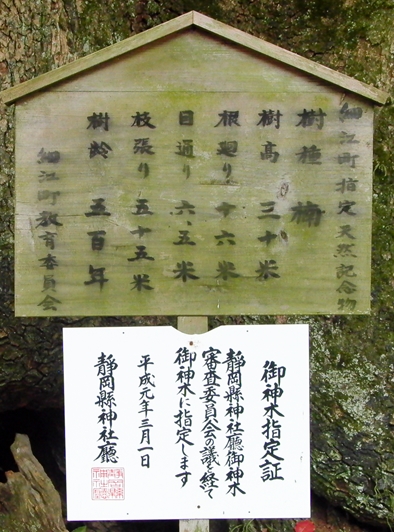 細江町指定天然記念物
樹種 楠
樹高 三十米
根廻り 十六米
目通り 六、五米
枝張り 五十五米
樹齢 五百年
細江町教育委員会
御神木指定証
静岡縣神社廳御神木
審査委員会の議を経て
御神木に指定します
平成元年三月一日
静岡縣神社廳